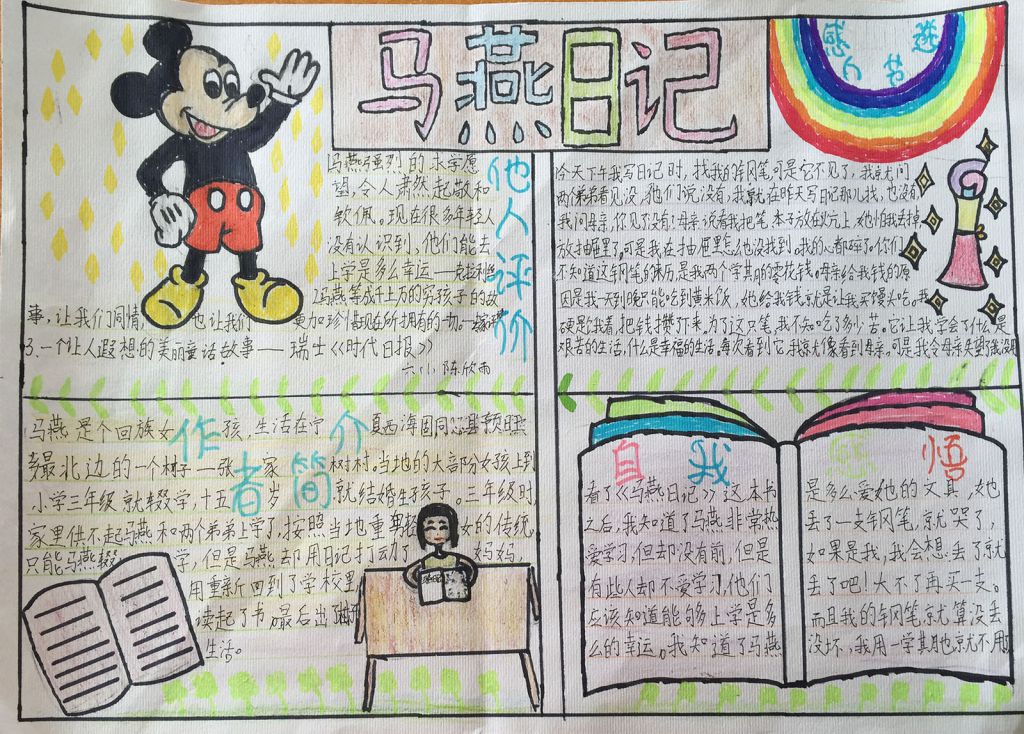 马燕日记
感人节选
他人评价
马燕强烈的求学愿
望,令人肃然起敬和
钦佩。现在很多年轻人
没有认识到,他们能去
上学是多么幸运——克拉利丝
2马燕等成千上万的穷孩子的故
事,让我们同情,也让我们更加珍惜现在所拥有的一切。
3.一个让人遐想的美丽童话故事——瑞士《时代日报》
六(1)陈欣雨
今天下午我写日记时,找我的钢笔可是它不见了,我就问
两个弟弟看见没,他们说没有,我就在昨天写日记那儿找,也没有,
我问母亲,你见了没有?母亲说看我把笔、本子放在炕上,她怕我丢掉
放抽匣里了。可是我在抽匣里怎么也没找到。我的心都碎了。你们
不知道这钢笔的来历是我两个学期的零花钱。母亲给我钱的原
因是我一天到晚只能吃到黄米饭,她给我钱就是让我买馍头吃。我
硬是饿着,把钱攒下来,为了这只笔,我不知吃了多少苦。它让我学会了什么是
艰苦的生活,什么是幸福的生活。每次看到它,我就像看到母亲。可是我令母亲失望了我没
作者简介
马燕是个回族女孩,生活在宁夏西海固同心县预旺
最北边的一个村子—张家树村。当地的大部份女孩上到
小学三年级就辍学,十五岁就结婚生孩子。三年级时
家里供不起马燕和两个弟弟上学了,按照当地重男轻女的传统,
只能马燕辍学,但是马燕却用日记打动了妈妈,
用重新回到了学校里
读起了书最后出了
生活。
自我感悟
看了《马燕日记》这本书
之后,我知道了马燕非常热
爱学习,但却没有前,但是
有些人却不爱学习,他们
应该知道能够上学是多
么的幸运。我知道了马燕
是多么爱她的文具,她
丢了一支钢笔,就哭了,
如果是我,我会想:丢了就
丢了吧!大不了再买一支。
而且我的钢笔就算没丢
没坏,我用一学其月也就不用